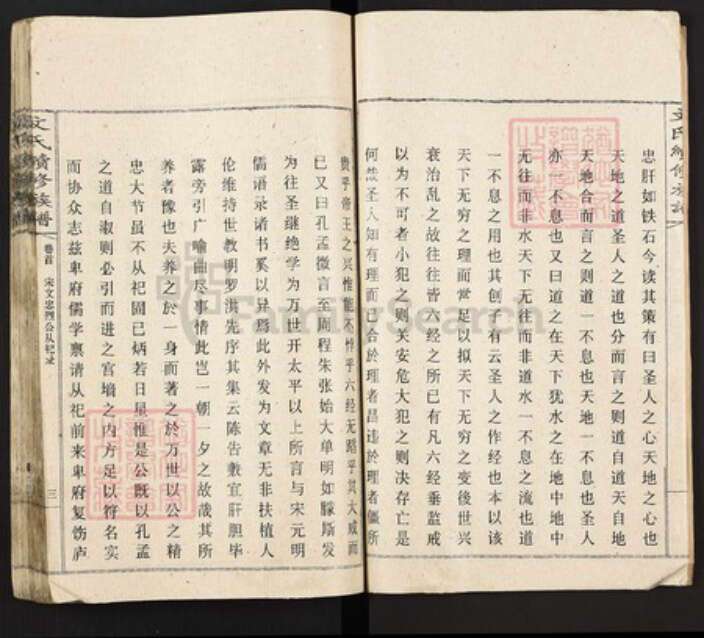 忠肝如铁石今读其策有曰圣人之心天地之心也
天地之道圣人之道也分而言之则道自道天自地
天地合而言之则道一不息也天地一不息也圣人
亦一不息也又曰道之在天下犹水之在地中地中
无往而非水天下无往而非道水一不息之流也道
一不息之用也其刨子有云圣人之作经也本以该
天下无穷之理而常足以拟天下无穷之变後世兴
衰治乱之故往往皆六经之所已有凡六经垂监戒
以为不可者小犯之则天安危大犯之则决存亡是
何哉圣人知有理而已合於理者昌违於理者僵所
贵乎帝王之兴惟能不悖乎六经无蹈乎其大戒而
已又曰孔孟微言至周程朱张始大单明如朦斯发
为往圣继绝学为万世开太平以上所言与宋元明
儒语录诸书奚以异焉此外发为文章无非扶植人
伦维持世教明罗洪先序其集云陈告敷宣肝胆毕
露旁引广喻曲尽事情此岂一朝一夕之故哉其所
养者豫也夫养之於一身而著之於万世以公之精
忠大节虽不从祀固已炳若日星惟是公既以孔孟
之道自淑则必引而进之宫墙之内方足以符名实
而协众志兹卑府儒学禀请从祀前来卑府复饬庐
文氏续修族谱
卷首 宋文忠烈公从祀录
三
文氏续修族谱
FamilySearch